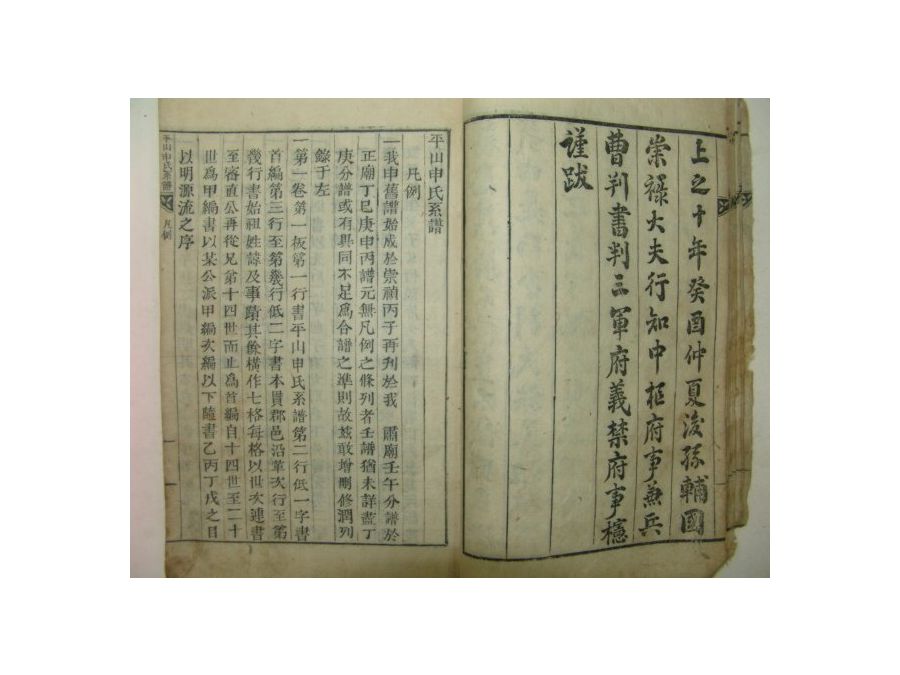 上之十年癸酉仲夏後孫輔國
崇祿大夫行知中樞府事兼兵
曹判書判三軍府義禁府事櫶
謹跋
平山申氏系譜
凡例
一我申舊譜始成於崇禎丙子再刋於我 肅廟壬午分譜於
正廟丁巳庚申丙譜元無凡例之條列者壬譜猶未詳盡丁
庚分譜或有異同不足爲合譜之準則故玆敢增刪修潤列
錄于左
一第一卷第一板第一行書平山申氏系譜第二行低一字書
首編第三行至第幾行低二字書本貫郡邑沿革次行至第
幾行書始祖姓諱及事蹟其餘橫作七格每格以世次連書
至審直公再從兄第十四世而止爲首編自十四世至二十
世爲甲編書以某公派甲編次編以下隨書乙丙丁戊之目
以明源流之序
平山申氏系譜 凡例